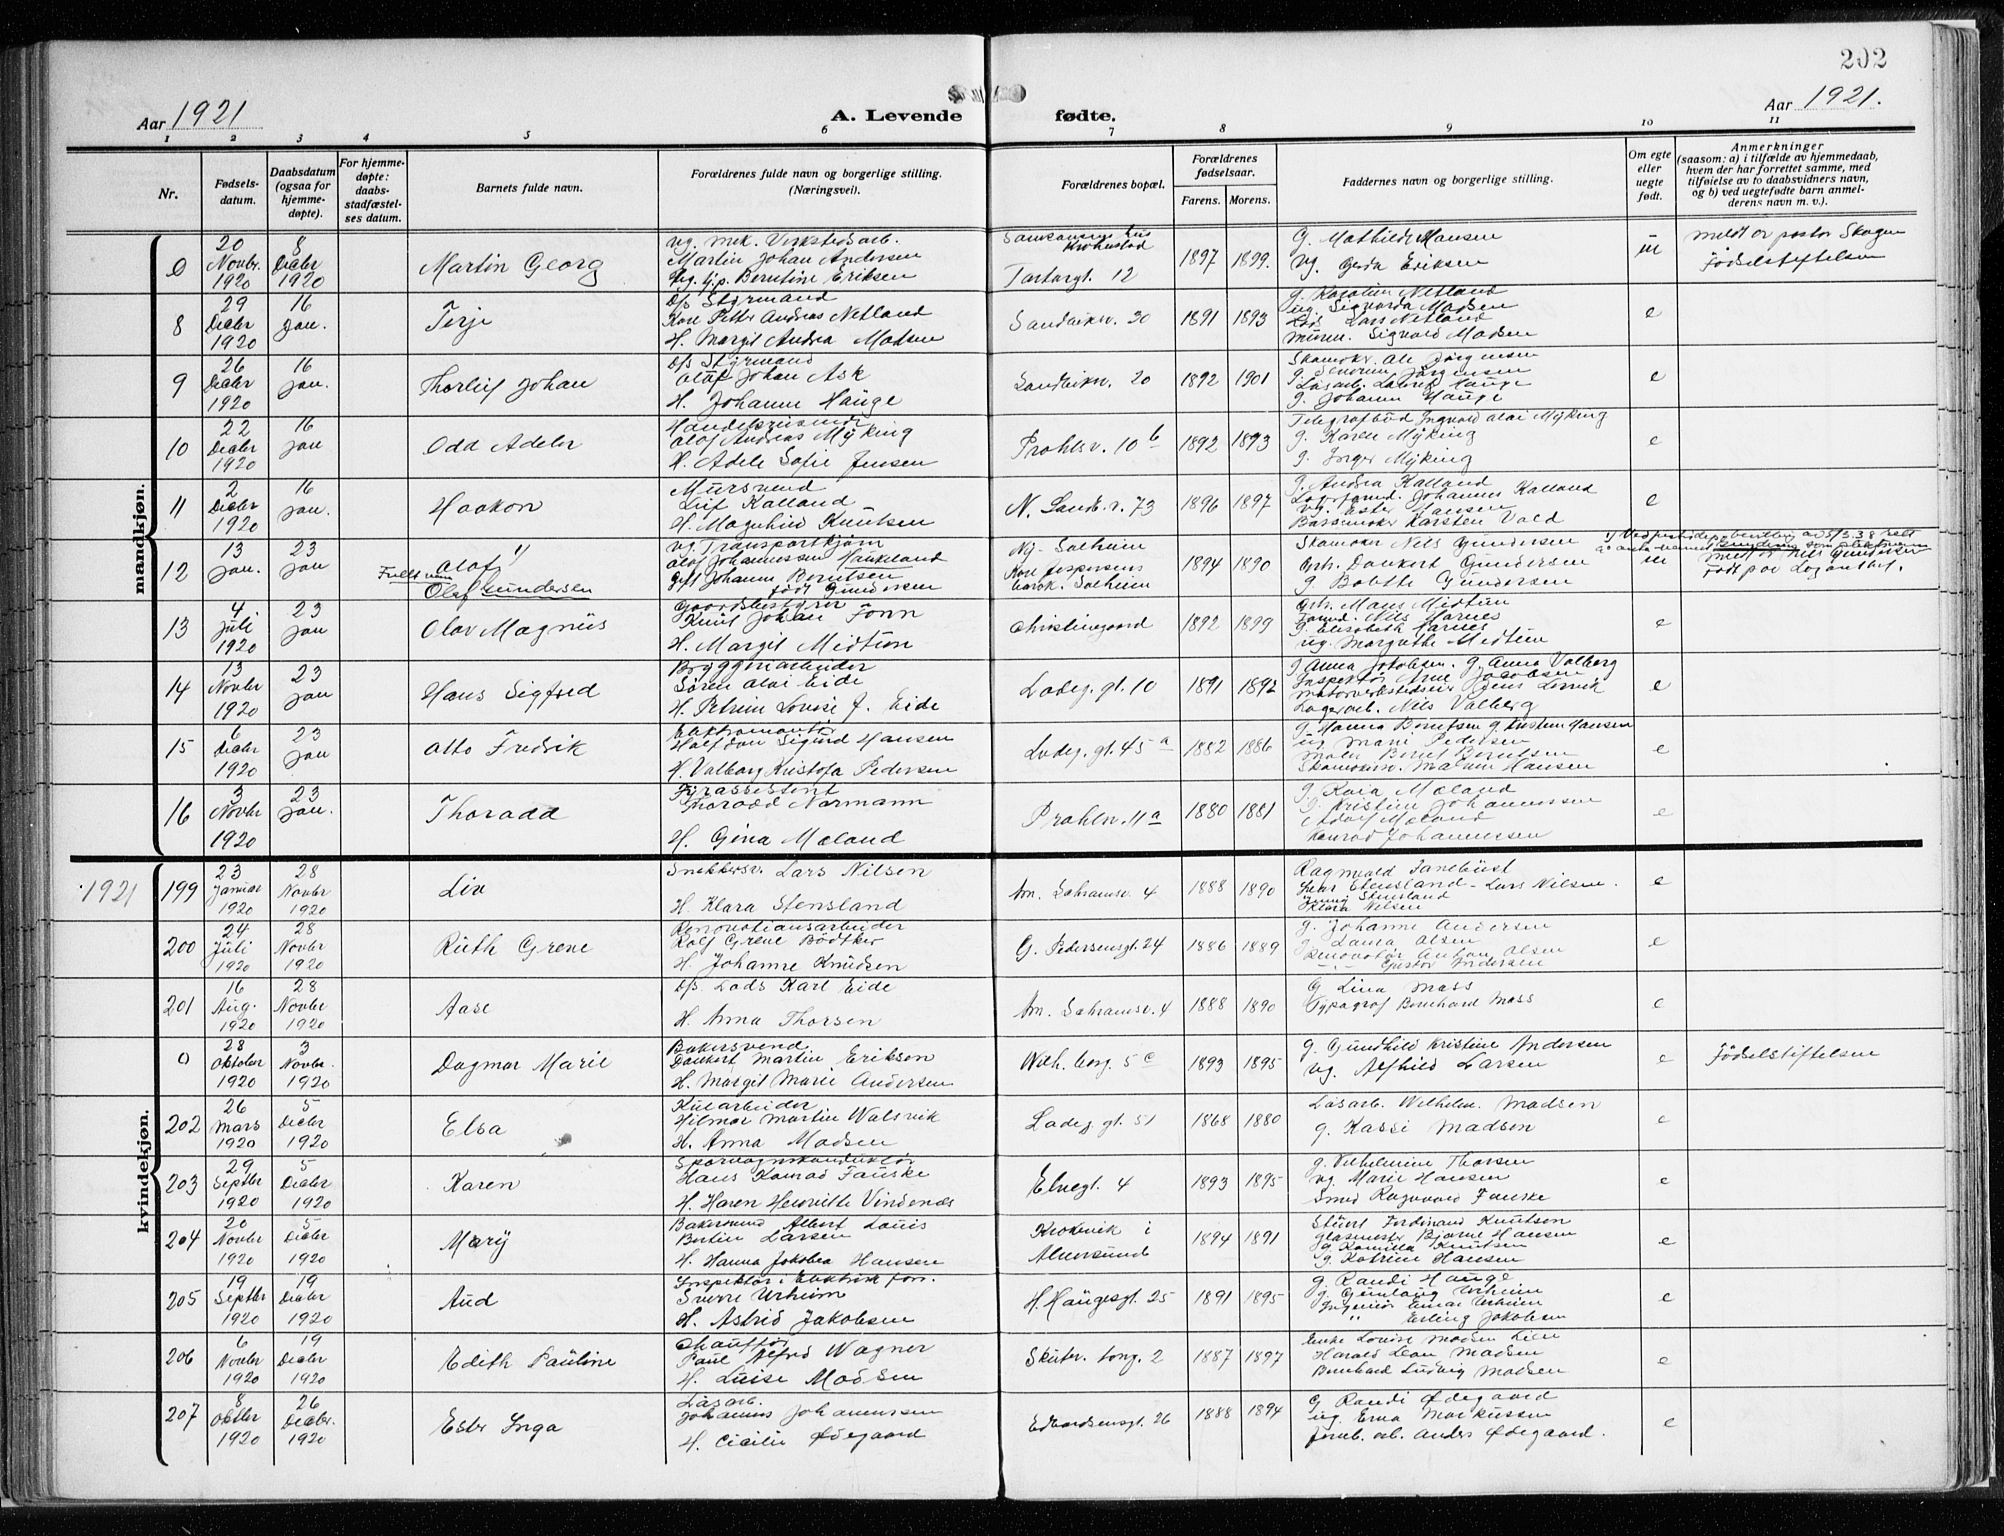 202
Aar 1921
A. Levende fødte.
Aar 1921.
1 2 3 4 5 6 7 8 9 10 11
Nr.
Fødsels-
datum.
Daabsdatum
(ogsaa for
hjemme-
døpte).
For hjemme-
døpte:
daabs-
stadfæstel-
ses datum.
Barnets fulde navn.
Forældrenes fulde navn og borgerlige stilling.
(Næringsvei).
Forældrenes bopæl.
Forældrenes
fødselsaar.
Farens. Morens.
Faddernes navn og borgerlige stilling.
Om egte
eller
uegte
født.
Anmerkninger
(saasom: a) i tilfælde av hjemmedaab,
hvem der har forrettet samme, med
tilføielse av to daabsvidners navn,
og b) ved uegtefødte barn anmel-
derens navn m. v.).
mandkjøn.
0
20 Novbr. 1920
8 Decbr 1920
Martin Georg
ug. mek. Verkstedsarb.
Martin Johan Andersen
ug. tj.p. Berntine Eriksen
Krohnstad
Tartargt. 12
1897 1899.
g. Mathilde Hansen
ug. Gerda Eriksen
u
meldt av pastor Skagen
Fødselstiftelsen
8
29 Decbr 1920
16 Jan.
Terje
D/s Styrmand
Kare Petter Andreas Netland
H. Margit Andrea Madsen
Sandviksv. 30
1891 1893
ug. Sigvarda Madsen
Lods Lars Netland
Murm. Sigvald Madsen
e
9
26 Decbr 1920
16 Jan.
Thorleif Johan
D/s Styrmand
Olaf Johan Ask
H. Johanne Hauge
Sandviksv. 20
1892 1901
Skomakr. Ole Jørgensen
g. Severine Jørgensen
Løsarb. Laurits Hauge
g. Johanne Hauge
e
10
22 Decbr 1920
16 Jan
Odd Adeler
Olaf Andreas Myking
H. Adele Sofie Jensen
Prahlsv. 10 b
1892 1893
Telegrafbud Ingvald Olai Myking
g. Karen Myking
g. Inger Myking
e
11
2 Decbr 1920
16 Jan.
Haakon
Mursvend
Leif Kalland
H. Magnhild Knutsen
N. Sandv.v. 73
1896 1897
g. Andrea Kalland
Lagerformd. Johannes Kalland
ug. Ester Hansen
Bøssemaker Karsten Vald
e
12
13 Jan.
23 Jan
Olaf 1)
Fuldt navn
Olaf Gundersen
ug. Transportkjører
Olaf Johannessen Haukeland
Gift Johanne Berntsen
født Gundersen
Ny-Solheim
Kare Jespersens
Solheim
1894 1890
Skomaker Nils Gundersen
Grh. Dankert Gundersen
g. Bobtte Gundersen
u
Født paa Løgaarden.
13
4 Juli 1920
23 Jan
Olav Magnus
Gaardsbestyrer
Knut Johan Fonn
H. Margit Midtun
Christinegaard
1892 1899
Grh. Mons Midtun
Formd. Nils Marnes
g. Elisabeth Marnes
ug. Margrethe Midtun
e
14
13 Novbr 1920
23 Jan
Hans Sigfred
Bryggeriarbeider
Søren Olai Eide
H. Petrine Lovise f. Eide
Ladeg. gt. 10
1891 1892
g. Anna Jakobsen. g. Anna Valberg
Inspektør Arne Jacobsen
Lagerarb. Nils Valberg
e
15
6 Decbr 1920
23 Jan
Otto Fredrik
Elektromontør
Halfdan Sigurd Hansen
H. Valborg Kristofa Pedersen
Ladeg. gt. 45 a
1882 1886
ug. Marie Pedersen
Maler Bernt Berntsen
e
16
3 Novbr 1920
23 Jan.
Thoradd
Fyrassistent
Thoradd Normann
H. Gina Mæland
Prahlsv. 11 a
1880 1881
g. Kaia Mæland
g. Kristine Johannessen
Adolf Mæland
Konrad Johannessen
e
1921
kvindekjøn.
199
23 Januar 1920
28 Novbr 1920
Liv
Snekkersv. Lars Nilsen
H. Klara Stensland
Am. Sahramsv. 4
1888 1890
Ragnvald Tanebust
Peter Stensland - Lars Nilsen.
Jenny Stensland
Klara Nilsen
e
200
24 Juli 1920
28 Novbr 1920
Ruth Greve
Renovationsarbeider
Rolf Greve Bødtker
H. Johanne Knudsen
G. Pedersensgt. 24
1886 1889
g. Johanne Andersen
g. Laura Olsen
Renovatør Anton Olsen
-"- Gustav Andersen
e
201
16 Aug. 1920
28 Novbr 1920
Aase
D/s. Lods Karl Eide
H. Anna Thorsen
Am. Sahramsv. 4
1888 1890
G Lina Mass
Typograf Bernhard Mass
e
0
28 Oktober 1920
3 Novbr. 1920
Dagmar Marie
Bakersvend
Dankert Martin Erikson
H. Margit Marie Andersen
Wilh. borg. 5 c
1893 1895
g. Gundhild Kristine Andersen
ug. Alfhild Larsen
e
Fødselstiftelsen
202
26 Mars 1920
5 Decbr 1920
Elsa
Kularbeider
Hilmar Martin Valsvik
H. Anna Madsen
Ladeg. gt. 51
1868 1880
Løsarb. Wilhelm. Madsen
g. Kassi Madsen
e
203
29 Septbr 1920
5 Decbr 1920
Karen
Sporvognskonduktør
Hans Konrad Fauske
H. Karen Henriette Vindenæs
Elvegt. 4
1893 1895
g. Vilhelmine Thorsen
ug. Marie Hansen
Smed Ragnvald Fauske
e
204
20 Novbr 1920
5 Decbr 1920
Mary
Bakersvend Albert Louis
Bertin Larsen
H. Hanna Jakobea Hansen
Krokevik i
Alversund
1894 1891
Stuert Ferdinand Knutson
Glasmester Bjarne Hansen
g. Kamilla Knutsen
g. Katrine Hansen
e
205
19 Septbr 1920
19 Decbr 1920
Aud
Inspektør i Elektrisk forr.
Sverre Urheim
H. Astrid Jakobsen
H. Haugesgt. 25
1891 1895
g. Randi Hauge
g. Gunlaug Urheim
Ingeniør Einar Urheim
" Erling Jakobsen
e
206
6 Novbr 1920
19 Decbr 1920
Edith Pauline
Chauffør
Paul Alfred Wagner
H. Luise Madsen
Skutv. torg. 2
1887 1897
Enke Lovise Madsen Lien
Harald Lean Madsen
Bernhard Ludvig Madsen
e
207
8 Oktbr 1920
26 Decbr. 1920
Ester Inga
Løsarb.
Johannes Johannessen
H. Cicilie Ødegaard
Edvardsensgt. 26
1888 1894
G Randi Ødegaard
ug. Erna Markussen
Jernb. arb. Anders Ødegaard.
e